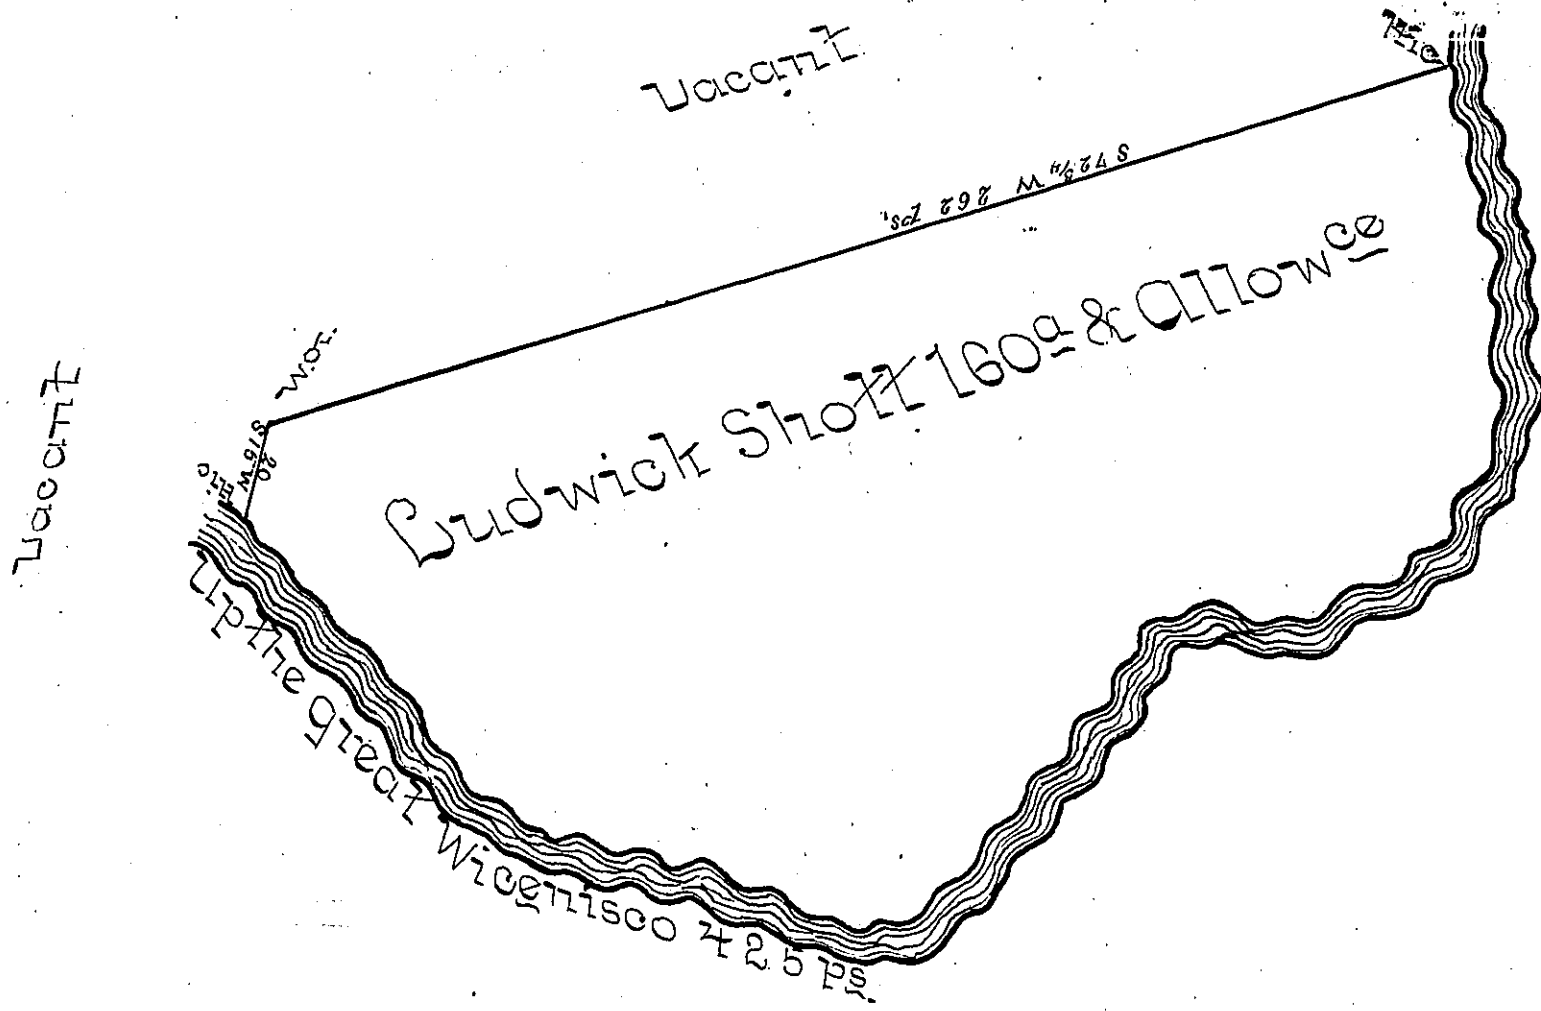 Vacant
Hic
S 72 3/4 W 262 Ps.
Ludwick Shott 160a & Allowce
W.O.
Vacant
S 16 W
20
Up the Great Wicenisco 425 Ps.